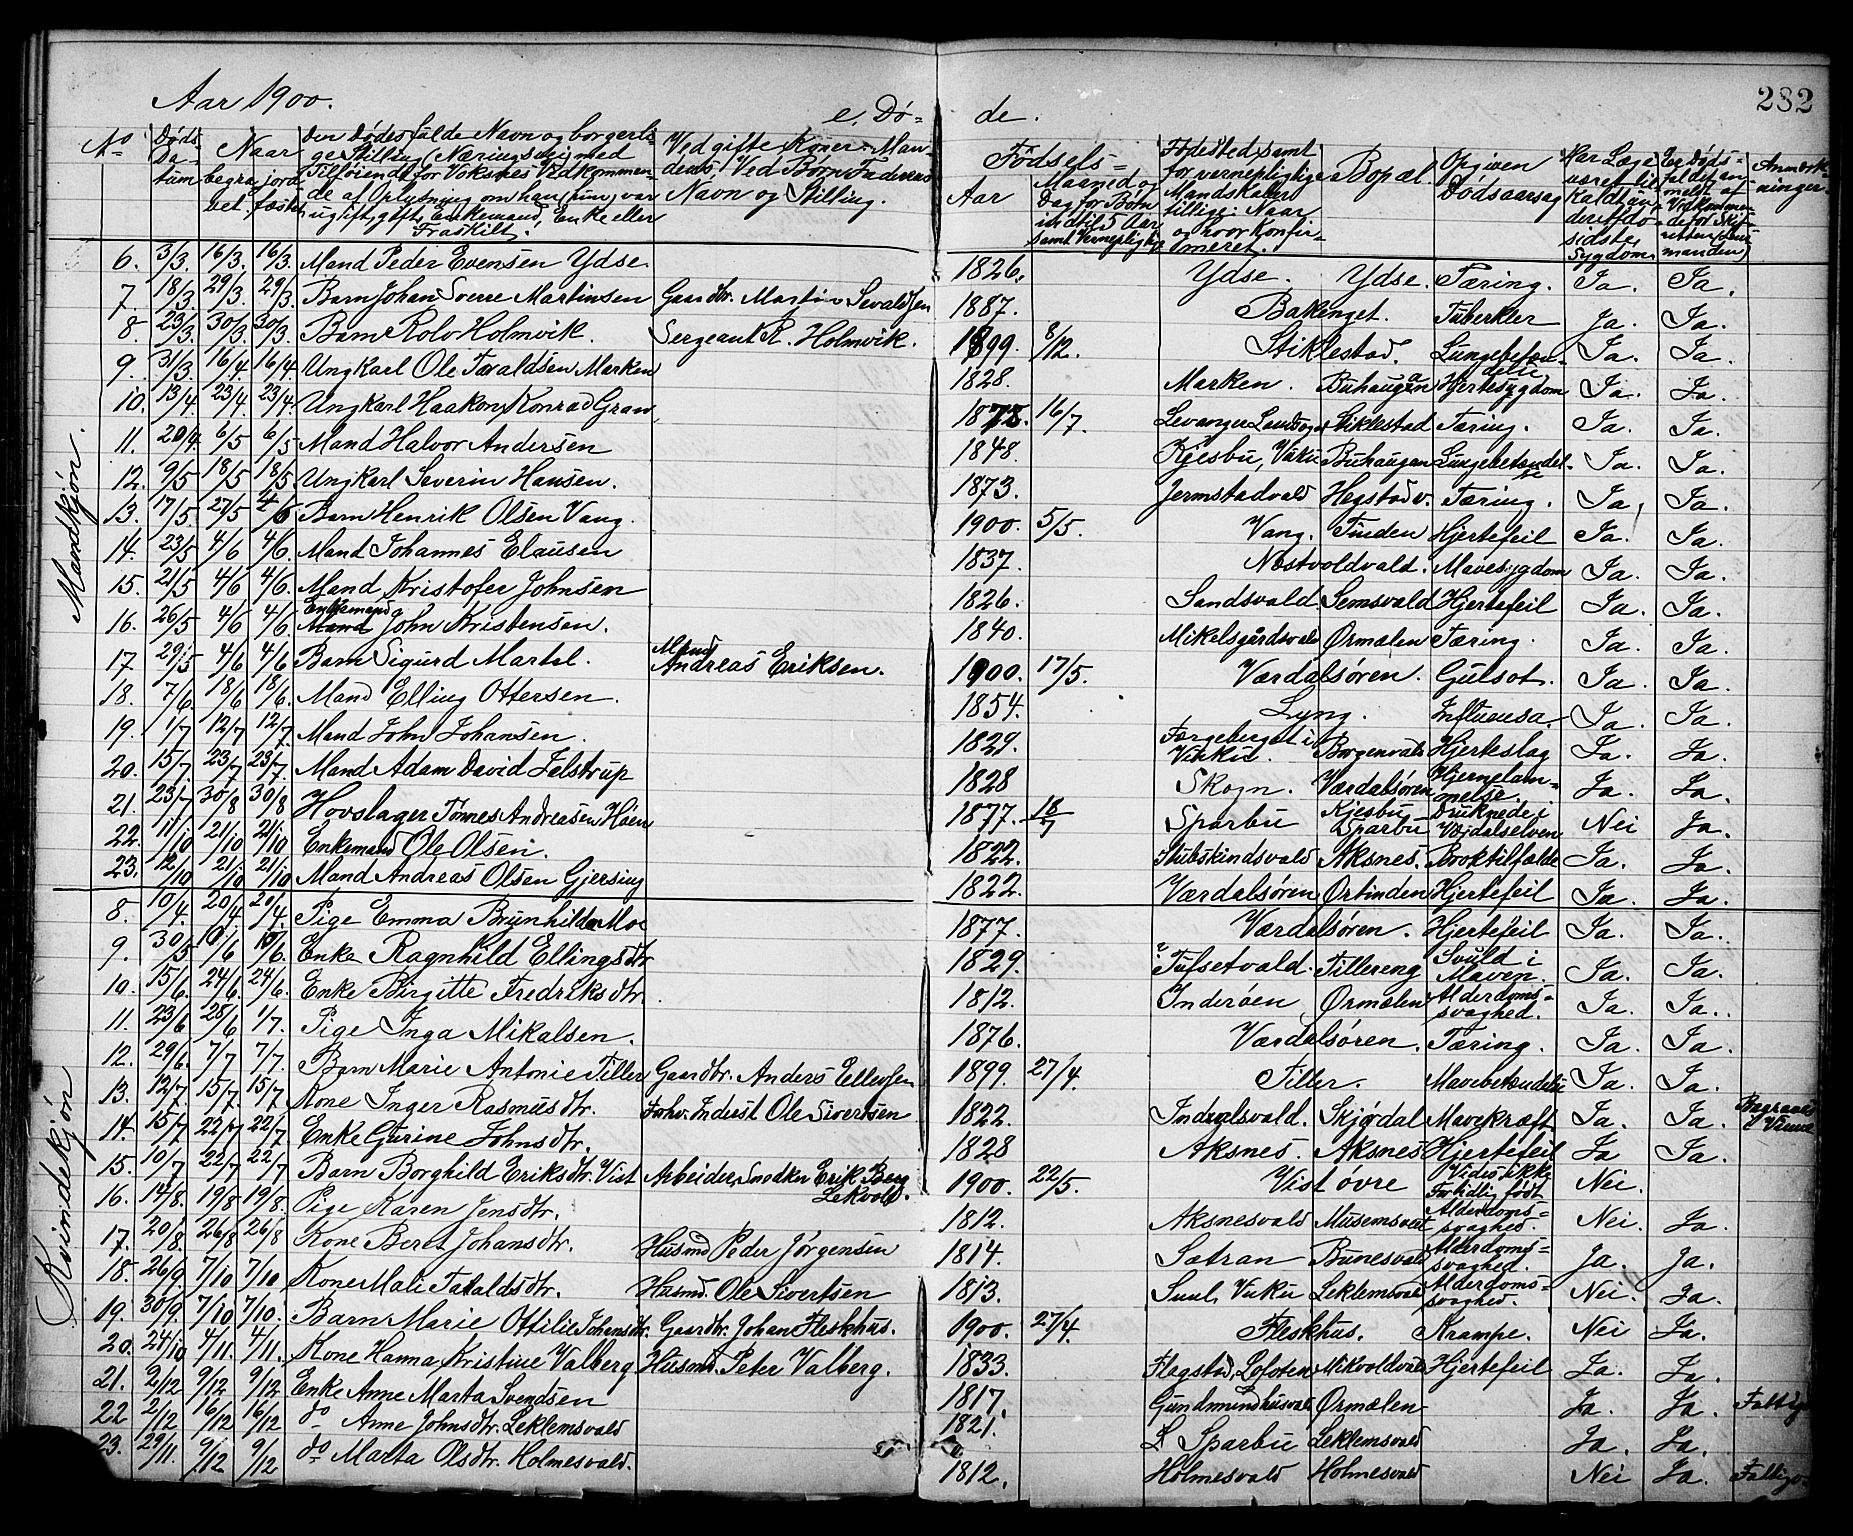 Aar 1900.
e, Dø- de.
282
No
Døds Datum
Naar begravet, jordfæstet
Den Dødes fulde Navn og borgerlige Stilling (Næringsvei) med Tilføiende for Voksnes Vedkommende af Oplysning om han (hun) var ugift, gift, Enkemand, Enke eller Fraskilt.
Ved gifte Koner: Mandens, Ved Børn Faderens Navn og Stilling.
Fødsels=
Aar
Maaned og Dag for Børn indtil 5 Aar samt Vernepligtige
Fødested, samt for vernepligtige Mandskaber tillige: Naar og hvor konfirmeret.
Bopæl
Opgiven Dødsaarsag
Har Læge været tilkaldt under den sidste Sygdom
Er Dødsfaldet anmeldt af Vedkommende for Skifteretten (Lensmanden)
Anmærkninger.
Mandkjøn.
6. 3/3. 16/3. 16/3. Mand Peder Evensen Ydse 1826. Ydse. Ydse. Tæring. Ja. Ja.
7 18/3 29/3. 29/3. Barn Johan Sverre Martinsen Gaardbr. Martin Sevaldsen 1887. Bakenget. Tuberkler Ja. Ja.
8. 23/3 30/3. 30/3. Barn Rolv Holmvik. Sergeant R. Holmvik. 1899. 8/12. Stiklestad. Ja. Ja.
9. 31/3. 16/4. 16/4. Ungkarl Ole Taraldsen Marken 1828. Marken. Buhaugen Hjertesygdom Ja. Ja.
10. 13/4 23/4. 23/4. Ungkarl Haakon Konrad Gran 1878. 16/7. Levanger Landsogn Stiklestad Tæring. Ja. Ja.
11. 20/4. 6/5 6/5 Mand Halvor Andersen 1848. Kjesbu, Vuku Buhaugan Lungebetændelse Ja. Ja.
12. 9/5 18/5 18/5 Ungkarl Severin Hansen. 1873. Jermstadvald Hegstadv. Tæring. Ja, Ja.
13. 17/5 27/5 4/6 Barn Henrik Olsen Vang. 1900. 5/5. Vang. Tinden Hjertefeil Ja. Ja.
14. 23/5 4/6 4/6. Mand Johannes Elausen 1837. Næstvoldvald. Mavesygdom Ja. Ja.
15. 21/5 4/6 4/6. Mand Kristofer Johnsen 1826. Sandsvald. Semsvald Hjertefeil Ja. Ja.
16. 26/5 4/6 4/6. Enkemand John Kristensen. 1840. Mikelsgårdsvald Ørmælen Tæring. Ja. Ja.
17 29/5 4/6 4/6 Barn Sigurd Martel. Mand Andreas Eriksen. 1900. 17/5. Værdalsøren. Gulsot. Ja. Ja.
18. 7/6 18/6 18/6. Mand Elling Ottersen 1854. Lyng. Influensa. Ja. Ja.
19. 1/7 12/7 12/7. Mand John Johansen. 1829. Færgeberget i Vuku. Borgenvald Hjerteslag Ja. Ja.
20. 15/7. 23/7 23/7. Mand Adam David Jelstrup 1828 Skogn. Værdalsøren Hjernelammelse. Ja. Ja.
21. 23/7 30/8 30/8 Hovslager Tønnes Andreasen Høen 1877. 18/7 Sparbu Kjesbu Sparbu Druknede i Værdalselven Nei Ja.
22. 11/10 21/10 21/10 Enkemand Ole Olsen. 1822. Stubskindsvald Aksnes. Broktilfælde Ja. Ja.
23. 12/10 21/10 21/10 Mand Andreas Olsen Gjersing 1822. Værdalsøren Ørtinden Hjertefeil Ja. Ja.
Kvindekjøn
8. 10/4. 20/4 20/4. Pige Emma Brunhilda Moe 1877. Værdalsøren. Hjertefeil Ja. Ja.
9. 30/5 10/6 10/6. Enke Ragnhild Ellingsdtr 1829. Tufsetvald. Tillereng Svuld i Maven. Ja. Ja.
10. 15/6. 24/6. 24/6. Enke Birgitte Fredriksdtr. 1812. Inderøen Ørmælen Alderdoms=svaghed. Ja. Ja.
11. 23/6 28/6 1/7. Pige Inga Mikalsen. 1876. Værdalsøren. Tæring. Ja. Ja.
12. 29/6. 7/7 7/7. Barn Marie Antonie Tiller Gaardbr. Anders Ellevsen 1899 27/4. Tiller. Mavebetændelse Ja. Ja.
13. 12/7. 15/7. 15/7. Kone Inger Rasmusdtr. Forhv. Inderst Ole Sivertsen 1822. Indalsvald. Skjørdal Mavekræft Ja. Ja. Begravet i Vinne
14. 15/7 22/7 22/7. Enke Gurine Johnsdtr. 1828 Aksnes. Aksnes Hjertefeil Ja Ja.
15. 10/7 22/7 22/7 Barn Borghild Eriksdtr. Vist Arbeider, Snedker Erik Berg Lekvold. 1900. 22/5. Vist øvre Vides ikke Fortidlig født Nei.
16. 14/8. 19/8 19/8. Pige Karen Jensdtr. 1812. Aksnesvald Musemsvald Alderdoms=svaghed. Nei. Ja.
17. 20/8. 26/8 26/8 Kone Beret Johansdtr. Husmd Peder Jørgensen 1814. Sætran Bunesvald Alderdoms=svaghed. Ja. Ja.
18. 26/9. 7/10 7/10 Kone Mali Taraldsdtr. Husmd. Ole Sivertsen 1813. Suul, Vuku Leklemsvald Alderdoms=svaghed. Nei. Ja.
19. 30/9. 7/10 7/10. Barn Marie Ottilie Johansdtr. Gaardbr. Johan Fleskhus. 1900. 27/4. Fleskhus. Krampe. Nei Ja.
20. 24/10 4/11. 4/11. Kone Hanna Kristine Valberg Husmd. Peter Valberg. 1833. Flagstad, Lofoten Mikvoldvald Hjertefeil Ja. Ja.
21. 2/12 9/12 9/12 Enke Anne Marta Svendsen 1817. Gundmundhusvald Ørmælen Ja. Ja. Fattig
22 2/12 16/12 16/12 do Anne Johnsdtr. Leklemsvald 1821. Sparbu Leklemsvald Ja. Ja.
23. 29/11. 9/12 9/12 do Marta Olsdtr. Holmesvald. 1812. Holmesvald Holmesvald Nei Ja. Fattig.